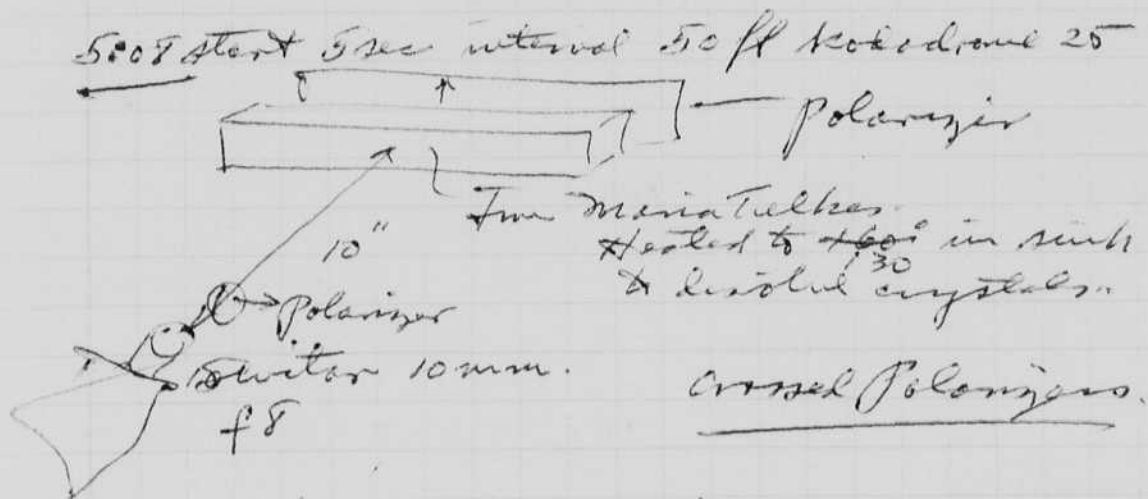 5:08 start 5 sec interval 50 ft Kokodrome 25
Polarizer
From Maria Telkes.
Heated to 160° in sink
130
to disolve crystals.
10"
Polarizer
Switar 10 mm.
f 8
Crossed Polarizers.